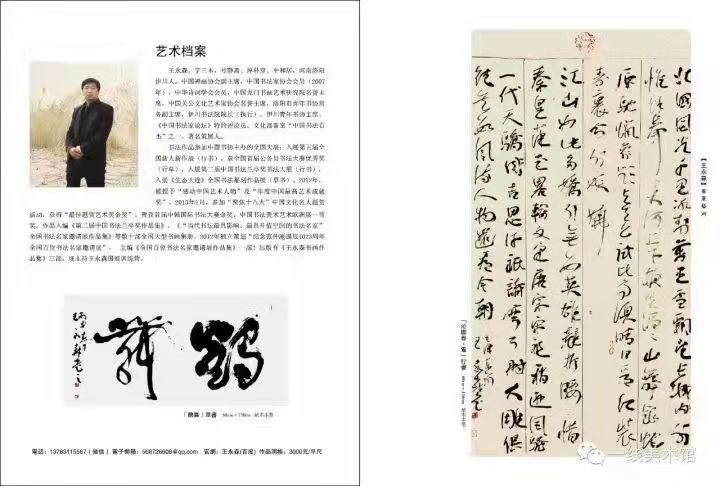 艺术档案
王永森:字三木,号静斋、厚朴堂、平和居,河南洛阳
伊川人。中国禅画协会副主席,中国书法家协会会员(2007
年),中华诗词学会会员,中国龙门书画艺术研究院名誉主
席,中国关公文化艺术家协会名誉主席,洛阳市青年书协常
务副主席,伊川书法院院长(执行),伊川青年书协主席。
《中国书法家论坛》特约评论员,文化部备案“中国书法百
杰”之一,著名策展人。
书法作品参加中国书协主办的全国大展:入展第五届全
国新人新作展(行书),获全国首届公务员书法大赛优秀奖
(行草),入展第二届中国书法兰亭奖书法大展(行书),
入展《生态大连》全国书法篆刻作品展(草书)。2012年,
被授予“感动中国艺术人物”及“年度中国最高艺术成就
奖”。2013年1月,参加“聚焦十八大”中国文化名人题贺
活动,获得“最佳题贺艺术奖金奖”。曾获首届中韩国际书法大赛金奖,中国书法美术艺术欧洲展一等
奖。作品入编《第二届中国书法兰亭奖作品集》、《“当代书法最具影响、最具升值空间的书法名家”
全国书法名家邀请展作品集》等数十部全国大型书画集册。2012年独立策划“纪念苏仲淹诞辰1023周年
全国百位书法名家邀请展”,主编《全国百位书法名家邀请展作品集》一部;出版有《王永森书画作
品集》三部。现主持王永森国画训练营。
鶴舞
「鶴舞」草書 68cm×138cm 紙本水墨
電話:13783115567(微信) 電子郵箱:568726608@qq.com 官網:王永森(百度) 作品潤格:3000元/平尺
北國風光千里冰封萬里雪飄望長城內外
惟餘莽莽大河上下頓失滔滔山舞銀蛇
原馳蠟象欲與天公試比高須晴日看紅裝
素裹分外妖嬈
江山如此多嬌引無數英雄競折腰惜
秦皇漢武略輸文采唐宗宋祖稍遜風騷
一代天驕成吉思汗祇識彎弓射大雕俱
往矣數風流人物還看今朝
「沁園春·雪」行書
68cm×138cm
紙本水墨
【王永森】
一线美术馆